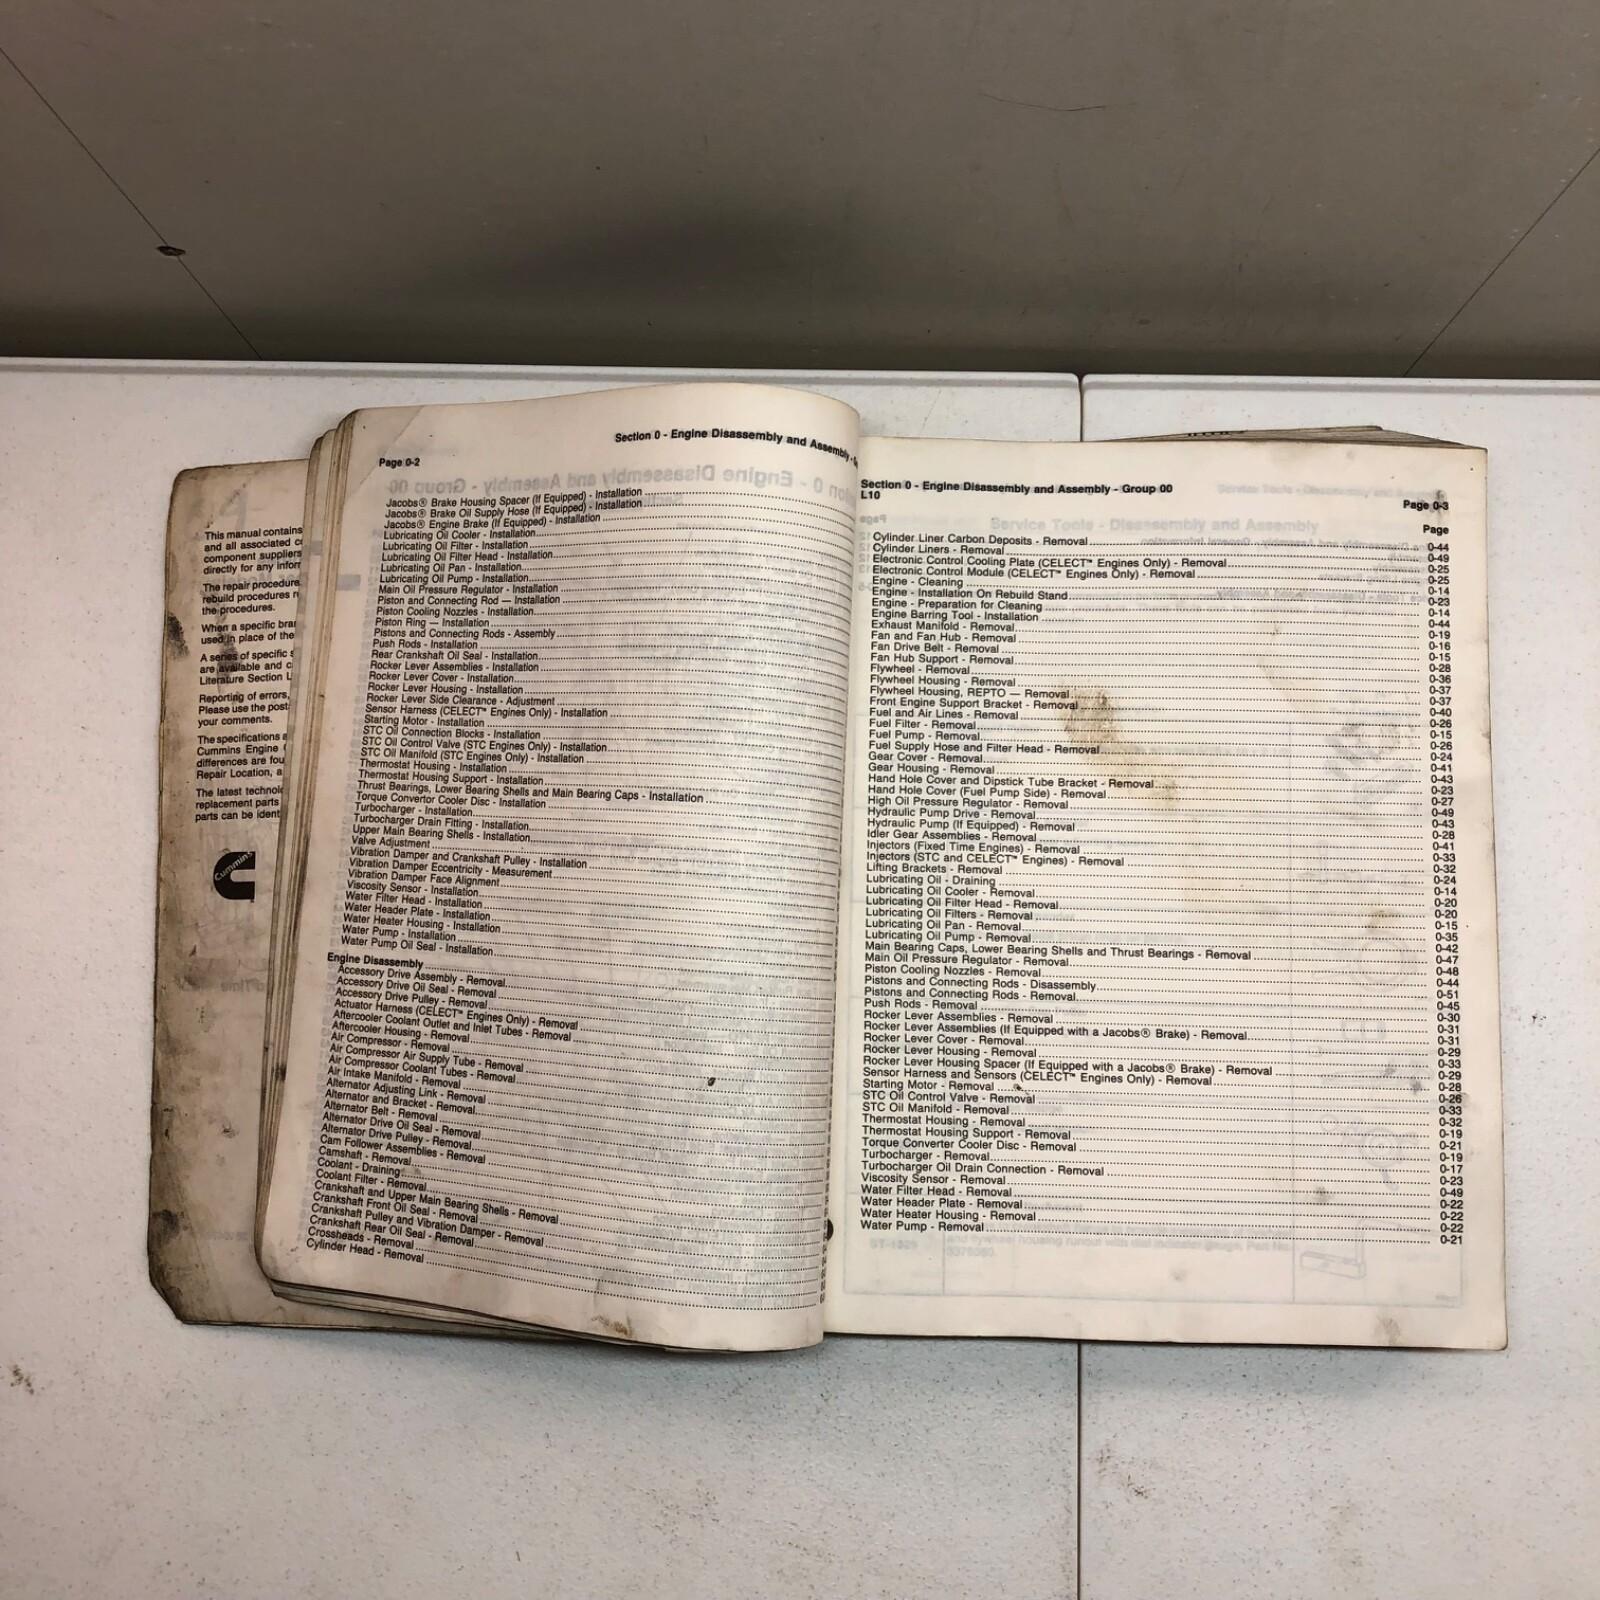 This manual contains
and all associated
component suppliers
directly for any
The repair procedure
rebuild procedures
the procedures.
When a specific
used in place of the
A series of specific
are available and
Literature Section
Reporting of errors,
Please use the
your comments.
The specifications
Cummins Engine
differences are
Repair Location,
The latest
replacement parts
parts can be
Cummins
Section 0 - Engine Disassembly and Assembly -
Page 0-2
Jacobs® Brake Housing Spacer (If Equipped) - Installation
Jacobs® Brake Oil Supply Hose (If Equipped) - Installation
Jacobs® Engine Brake (If Equipped) - Installation
Lubricating Oil Cooler - Installation
Lubricating Oil Filter - Installation
Lubricating Oil Filter Head - Installation
Lubricating Oil Pan - Installation
Lubricating Oil Pump - Installation
Main Oil Pressure Regulator - Installation
Piston and Connecting Rod — Installation
Piston Cooling Nozzles - Installation
Piston Ring — Installation
Pistons and Connecting Rods - Assembly
Push Rods - Installation
Rear Crankshaft Oil Seal - Installation
Rocker Lever Assemblies - Installation
Rocker Lever Cover - Installation
Rocker Lever Housing - Installation
Rocker Lever Side Clearance - Adjustment
Sensor Harness (CELECT™ Engines Only) - Installation
Starting Motor - Installation
STC Oil Connection Blocks - Installation
STC Oil Control Valve (STC Engines Only) - Installation
STC Oil Manifold (STC Engines Only) - Installation
Thermostat Housing - Installation
Thermostat Housing Support - Installation
Thrust Bearings, Lower Bearing Shells and Main Bearing Caps - Installation
Torque Convertor Cooler Disc - Installation
Turbocharger - Installation
Turbocharger Drain Fitting - Installation
Upper Main Bearing Shells - Installation
Valve Adjustment
Vibration Damper and Crankshaft Pulley - Installation
Vibration Damper Eccentricity - Measurement
Vibration Damper Face Alignment
Viscosity Sensor - Installation
Water Filter Head - Installation
Water Header Plate - Installation
Water Heater Housing - Installation
Water Pump - Installation
Water Pump Oil Seal - Installation
Engine Disassembly
Accessory Drive Assembly - Removal
Accessory Drive Oil Seal - Removal
Accessory Drive Pulley - Removal
Actuator Harness (CELECT™ Engines Only) - Removal
Aftercooler Coolant Outlet and Inlet Tubes - Removal
Aftercooler Housing - Removal
Air Compressor - Removal
Air Compressor Air Supply Tube - Removal
Air Compressor Coolant Tubes - Removal
Air Intake Manifold - Removal
Alternator Adjusting Link - Removal
Alternator and Bracket - Removal
Alternator Belt - Removal
Alternator Drive Oil Seal - Removal
Alternator Drive Pulley - Removal
Cam Follower Assemblies - Removal
Camshaft - Removal
Coolant - Draining
Coolant Filter - Removal
Crankshaft and Upper Main Bearing Shells - Removal
Crankshaft Front Oil Seal - Removal
Crankshaft Pulley and Vibration Damper - Removal
Crankshaft Rear Oil Seal - Removal
Crossheads - Removal
Cylinder Head - Removal
Section 0 - Engine Disassembly and Assembly - Group 00
L10
Page 0-3
Page
Cylinder Liner Carbon Deposits - Removal 0-44
Cylinder Liners - Removal 0-49
Electronic Control Cooling Plate (CELECT™ Engines Only) - Removal 0-25
Electronic Control Module (CELECT™ Engines Only) - Removal 0-25
Engine - Cleaning 0-14
Engine - Installation On Rebuild Stand 0-23
Engine - Preparation for Cleaning 0-14
Engine Barring Tool - Installation 0-44
Exhaust Manifold - Removal 0-19
Fan and Fan Hub - Removal 0-16
Fan Drive Belt - Removal 0-15
Fan Hub Support - Removal 0-28
Flywheel - Removal 0-36
Flywheel Housing - Removal 0-37
Flywheel Housing, REPTO — Removal 0-37
Front Engine Support Bracket - Removal 0-40
Fuel and Air Lines - Removal 0-26
Fuel Filter - Removal 0-15
Fuel Pump - Removal 0-26
Fuel Supply Hose and Filter Head - Removal 0-24
Gear Cover - Removal 0-41
Gear Housing - Removal 0-43
Hand Hole Cover and Dipstick Tube Bracket - Removal 0-23
Hand Hole Cover (Fuel Pump Side) - Removal 0-27
High Oil Pressure Regulator - Removal 0-49
Hydraulic Pump Drive - Removal 0-43
Hydraulic Pump (If Equipped) - Removal 0-28
Idler Gear Assemblies - Removal 0-41
Injectors (Fixed Time Engines) - Removal 0-33
Injectors (STC and CELECT™ Engines) - Removal 0-32
Lifting Brackets - Removal 0-24
Lubricating Oil - Draining 0-14
Lubricating Oil Cooler - Removal 0-20
Lubricating Oil Filter Head - Removal 0-20
Lubricating Oil Filters - Removal 0-15
Lubricating Oil Pan - Removal 0-35
Lubricating Oil Pump - Removal 0-42
Main Bearing Caps, Lower Bearing Shells and Thrust Bearings - Removal 0-47
Main Oil Pressure Regulator - Removal 0-48
Piston Cooling Nozzles - Removal 0-44
Pistons and Connecting Rods - Disassembly 0-51
Pistons and Connecting Rods - Removal 0-45
Push Rods - Removal 0-30
Rocker Lever Assemblies - Removal 0-31
Rocker Lever Assemblies (If Equipped with a Jacobs® Brake) - Removal 0-31
Rocker Lever Cover - Removal 0-29
Rocker Lever Housing - Removal 0-33
Rocker Lever Housing Spacer (If Equipped with a Jacobs® Brake) - Removal 0-29
Sensor Harness and Sensors (CELECT™ Engines Only) - Removal 0-28
Starting Motor - Removal 0-26
STC Oil Control Valve - Removal 0-33
STC Oil Manifold - Removal 0-32
Thermostat Housing - Removal 0-19
Thermostat Housing Support - Removal 0-21
Torque Converter Cooler Disc - Removal 0-19
Turbocharger - Removal 0-17
Turbocharger Oil Drain Connection - Removal 0-23
Viscosity Sensor - Removal 0-49
Water Filter Head - Removal 0-22
Water Header Plate - Removal 0-22
Water Heater Housing - Removal 0-22
Water Pump - Removal 0-21